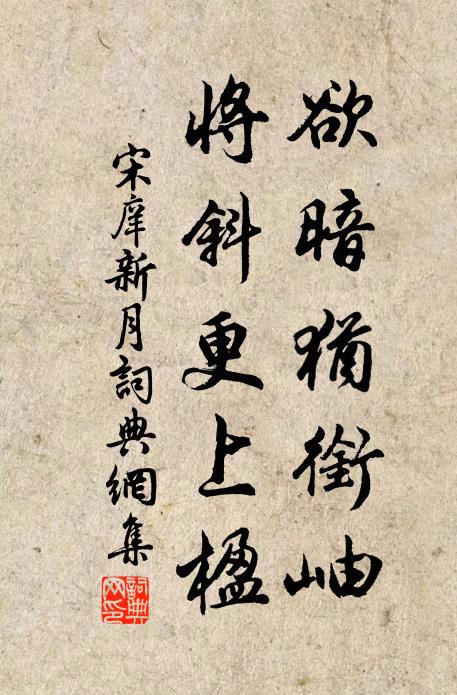 欲暗猶銜岫
將斜更上楹
宋庠新月詞典網集
詞典
网印